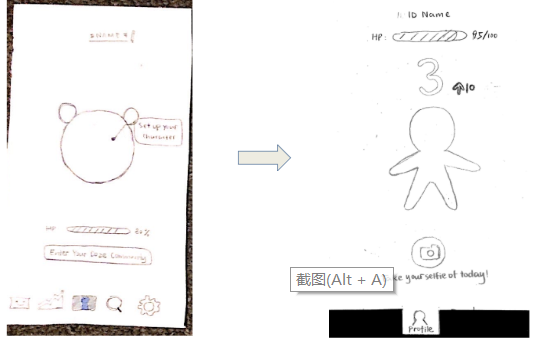 Set up your
character
HP
Enter Your Daze Community
ID Name
HP: 95/100
3 10
截图(Alt + A)
ke your selfie of today!
Profile